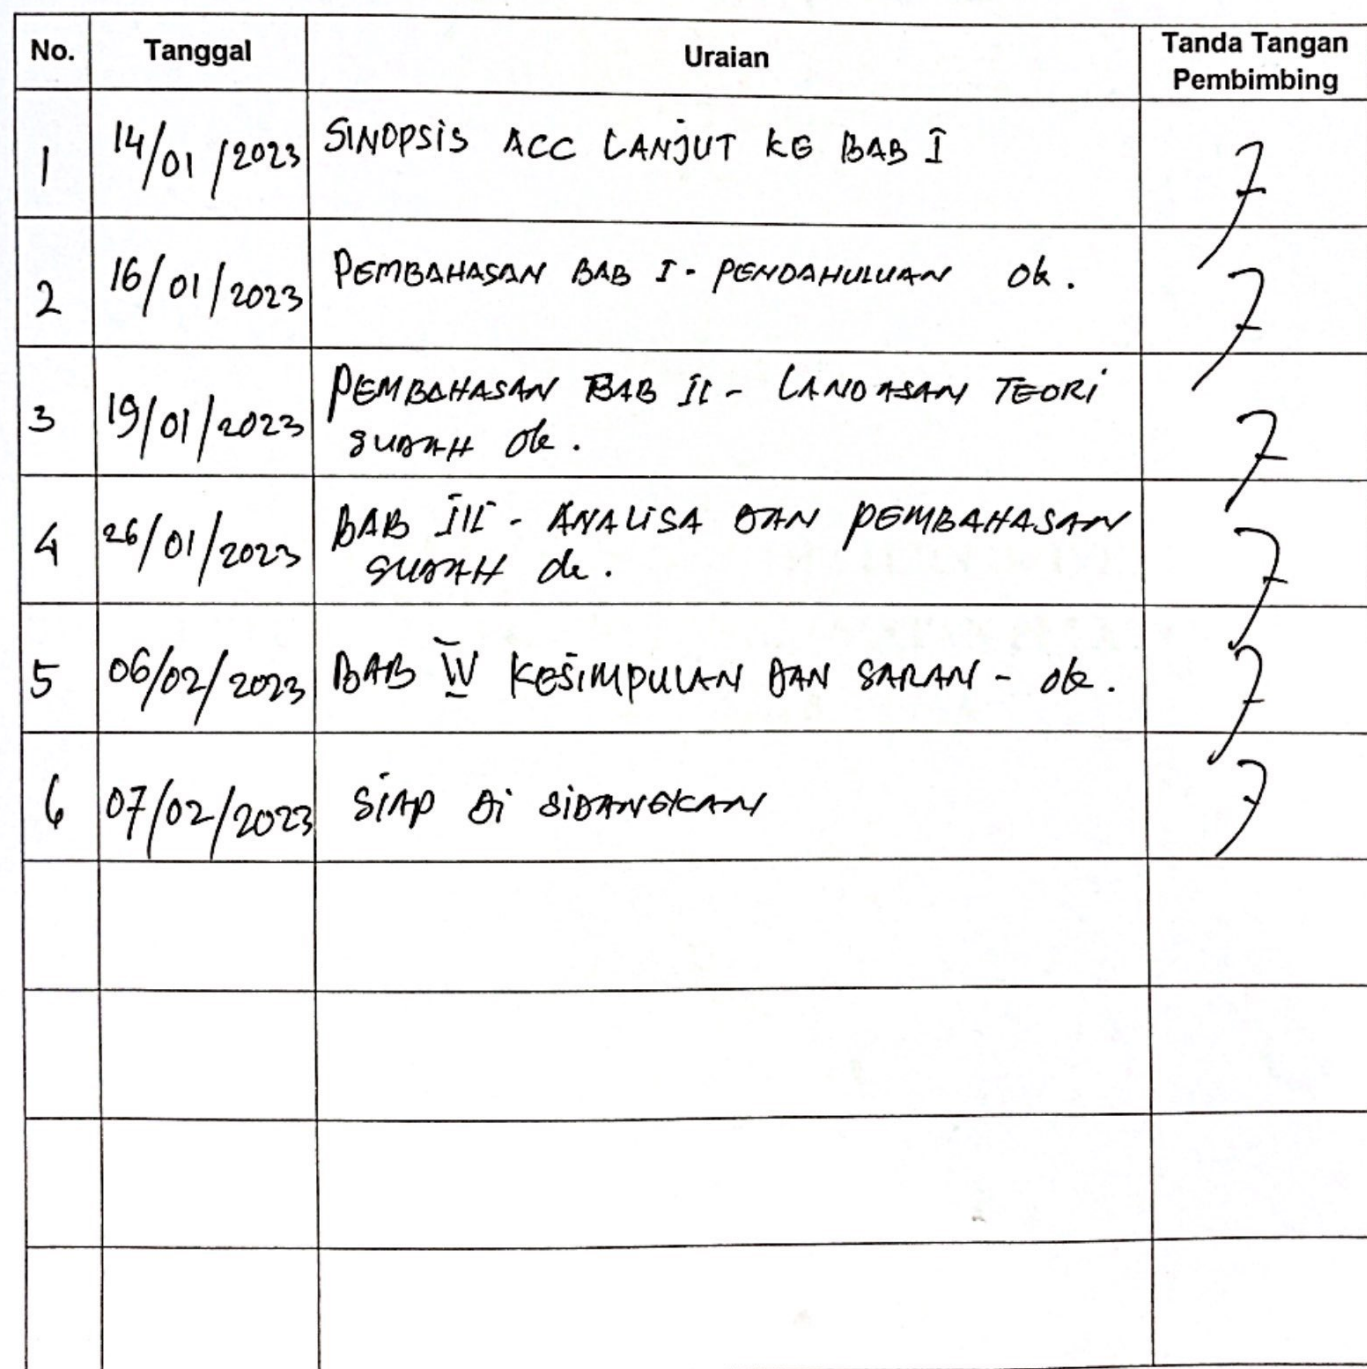 No. Tanggal Uraian Tanda Tangan Pembimbing
1 14/01/2023 SINOPSIS ACC LANJUT KE BAB I
2 16/01/2023 PEMBAHASAN BAB I - PENDAHULUAN Ok.
3 19/01/2023 PEMBAHASAN BAB II - LANDASAN TEORI
SUDAH Ok.
4 26/01/2023 BAB III - ANALISA DAN PEMBAHASAN
SUDAH Ok.
5 06/02/2023 BAB IV KESIMPULAN DAN SARAN - Ok.
6 07/02/2023 SIAP DI SIDANGKAN